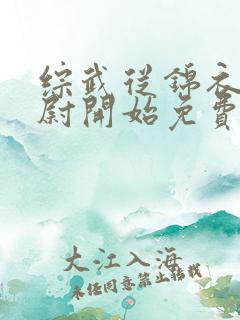 綜武從錦衣
尉開始免費
大江入海
未经同意禁止转载